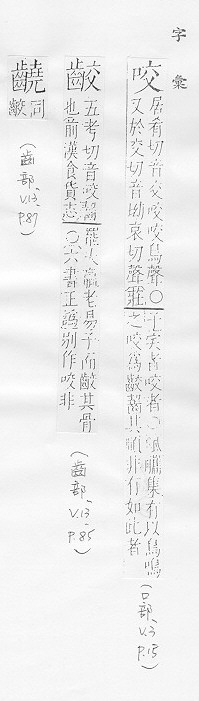 字彙
咬
居肴切音交咬咬鳥聲〇
又於交切音坳哀切聲莊
之咬為齩齧其
非有如此者
(口部、V.3 P.15)
齩
五考切音咬齧罷夫羸老易子而齩其骨
也前漢食貨志〇六書正譌別作咬非
(齒部、V.13- P.85)
同
齩
(齒部、V.13- P.87)